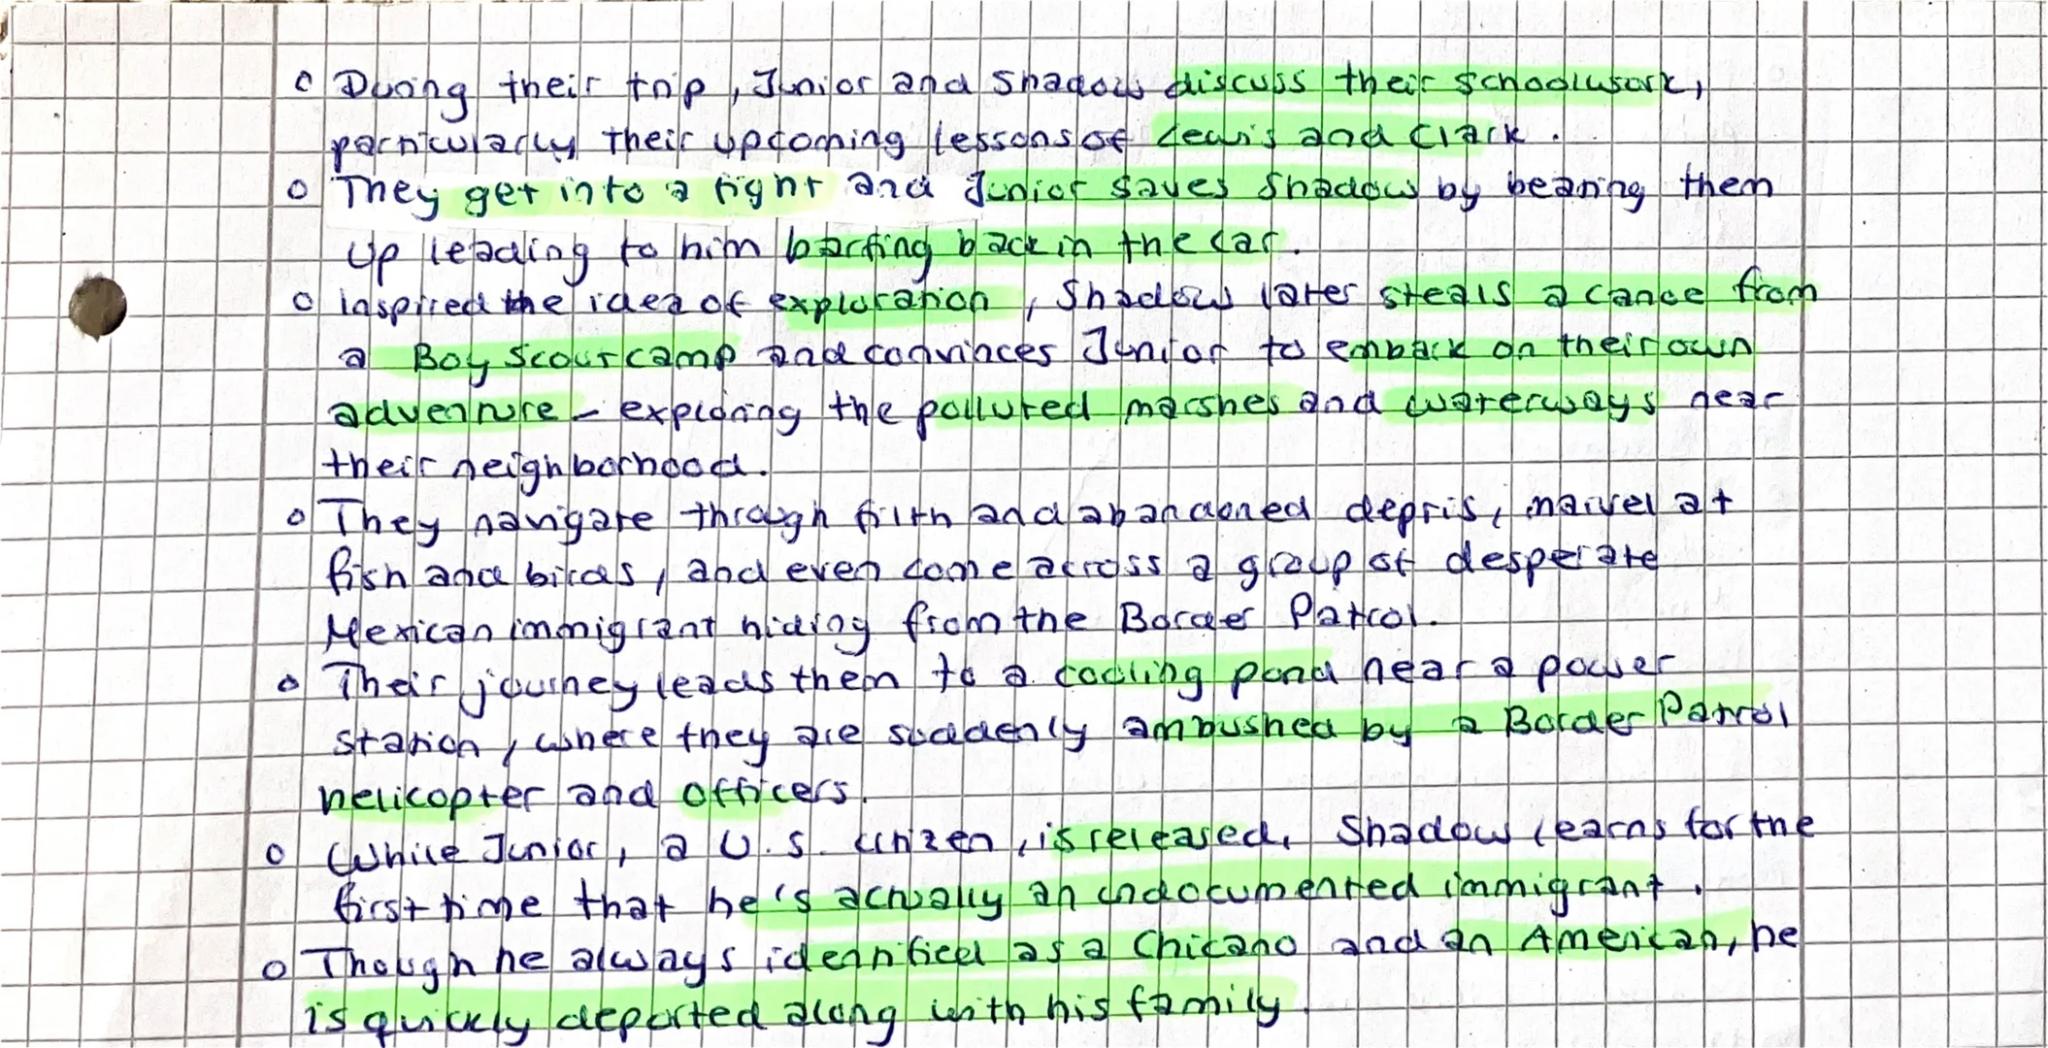 o During their trip, Junior and Shadow discuss their schoolwork,
particularly their upcoming lessons of Lewis and Clark.
o They get into a fight and Junior saves Shadow by beating them
up leading to him barfing back in the car.
o inspired the idea of exploration, Shadow later steals a canoe from
a Boy Scout camp and convinces Junior to embark on their own
adventure – exploring the polluted marshes and waterways near
their neighborhood.
o They navigate through filth and abandoned depris, marvel at
fish and birds, and even come across a group of desperate
Mexican immigrant hiding from the Border Patrol.
o Their journey leads them to a cooling pond near a power
station, where they are suddenly ambushed by a Border Patrol
helicopter and officers.
o While Junior, a U.S. citizen, is released, Shadow learns for the
first time that he's actually an undocumented immigrant.
o Though he always identified as a Chicano and an American, he
is quickly deported along with his family.